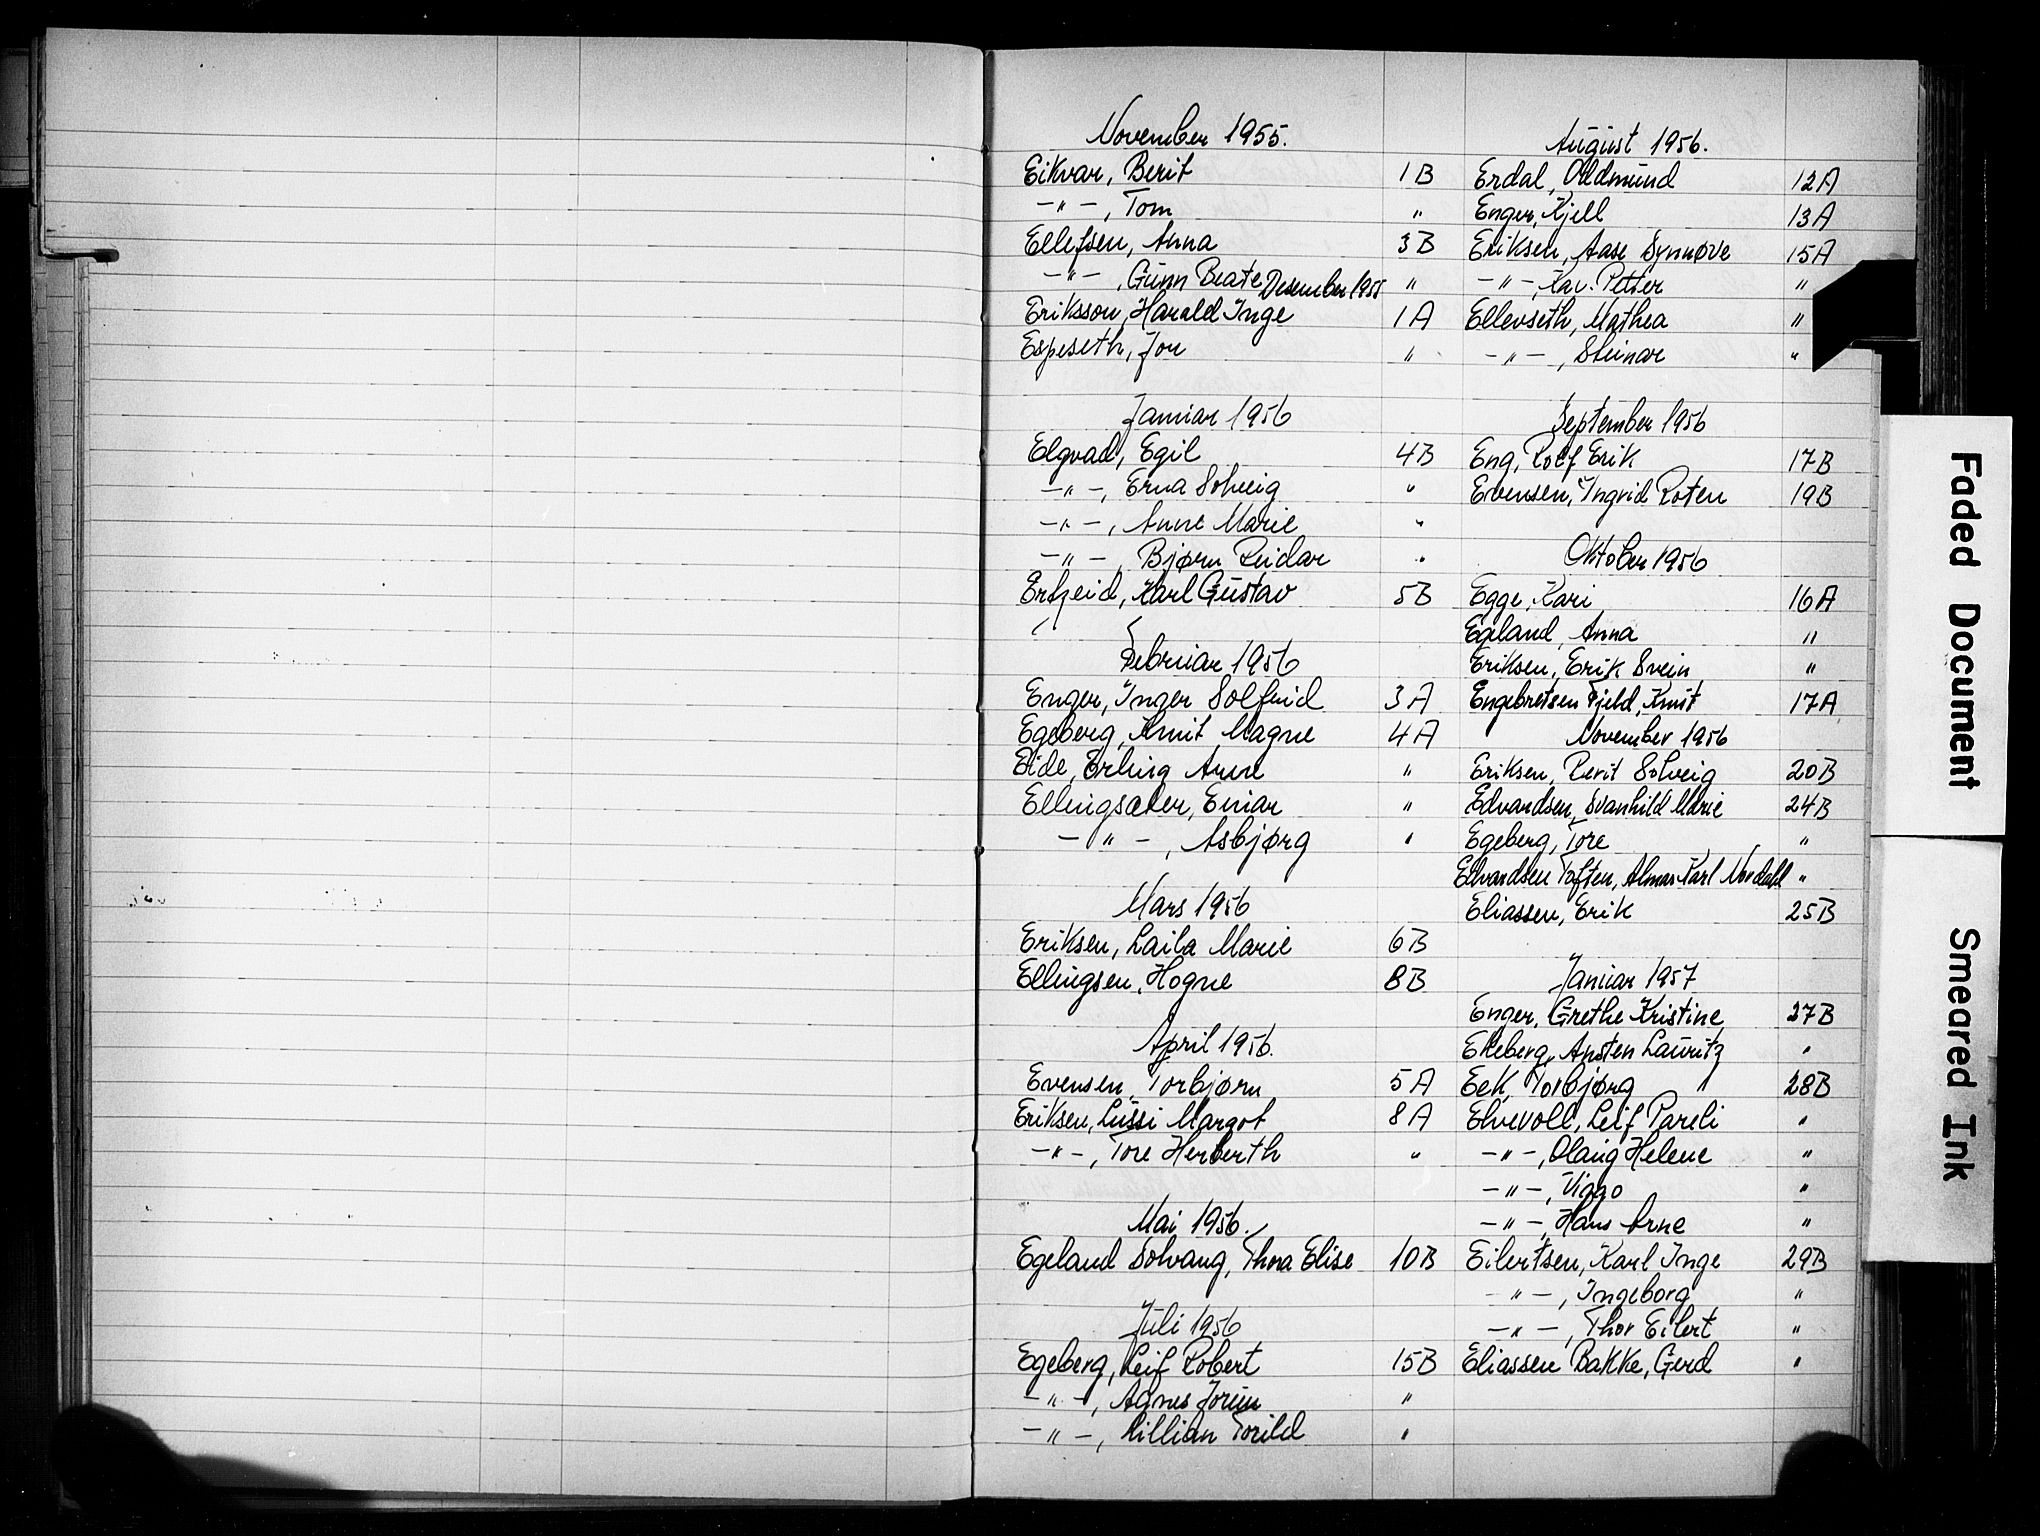 November 1955.
Eikvar, Berit 1B
-"-, Tom "
Ellefsen, Anna 3B
-"-, Gunn Beate "
Desember 1955
Eriksson, Harald Inge 1A
Espeseth, Jon "
Januar 1956
Elgvad, Egil 4B
-"-, Erna Solveig "
-"-, Anne Marie "
-"-, Bjørn Reidar "
Karl Gustav 5B
Februar 1956
Enger, Inger Solfrid 3A
Egeberg, Knut Magne 4A
Eide, Erling Arne "
Ellingsæter, Einar "
-"-, Asbjørg "
Mars 1956
Eriksen, Laila Marie 6B
Ellingsen, Hogne 8B
April 1956.
Evensen, Torbjørn 5A
Eriksen, Lussi Margot 8A
-"-, Tore Herberth "
Mai 1956.
Egeland Solvang, Thora Elise 10B
Juli 1956
Egeberg, Leif Robert 15B
-"-, Agnes Jorun "
-"-, Lillian Torild "
August 1956.
Erdal, Oddmund 12A
Enger, Kjell 13A
Eriksen, Aase Synnøve 15A
-"-, Petter "
Ellevseth, Mathea "
-"-, Steinar "
September 1956
Eng, Rolf Erik 17B
Evensen, Ingrid Roten 19B
Oktober 1956
Egge, Kari 16A
Egeland, Anna "
Eriksen, Erik Svein "
Engebretsen Fjeld, Knut 17A
November 1956
Eriksen, Berit Solveig 20B
Edvardsen, Svanhild Marie 24B
Egeberg, Tore "
Edvardsen Toften, Almar Karl Nordahl "
Eliassen, Erik 25B
Januar 1957
Enger, Grethe Kristine 27B
Ekeberg, Austen Lauritz "
Eek, Torbjørg 28B
Elvevoll, Leif Pareli "
-"-, Olaug Helene "
-"-, Viggo "
-"-, Hans Arne "
Eilertsen, Karl Inge 29B
-"-, Ingeborg "
-"-, Thor Eilert "
Eliassen Bakke, Gerd "
Faded Document
Smeared Ink